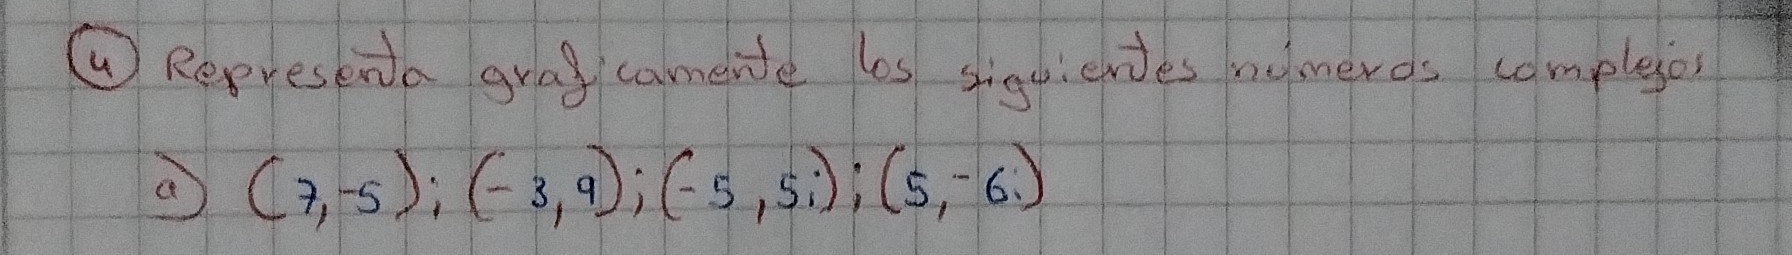 ④ Representa graficamente los siguientes números complejos
a) (7,-5); (-3,9); (-5,5i); (5,-6i)